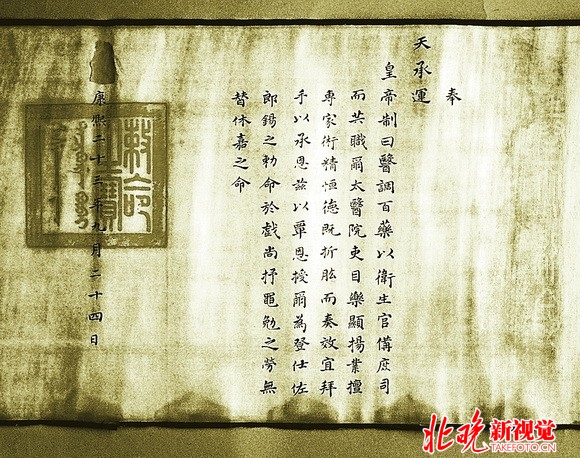 奉
天承運
皇帝制曰醫調百藥以衛生官俻庶司
而共職爾太醫院吏目樂顯揚業擅
專家術精恒德既折肱而奏效宜拜
手以承恩茲以覃恩授爾為登仕佐
郎錫之勅命於戲尚抒黽勉之勞無
替休嘉之命
康熙二十三年九月二十四日
敕命之寶
北晚新视觉
TAKEFOTO.CN